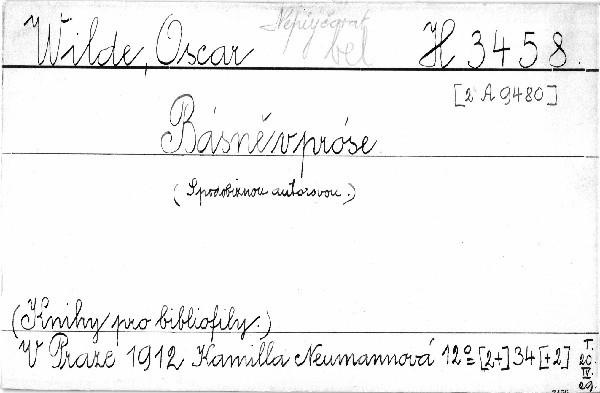 Nepůjčovat
Wilde, Oscar bel H 3458.
[2 A 9480]
Básně v próse
(S podobiznou autorovou.)
(Knihy pro bibliofily.)
V Praze 1912 Kamilla Neumannová 12° [2+] 34 [+2]
T.
20.
IV.
29.